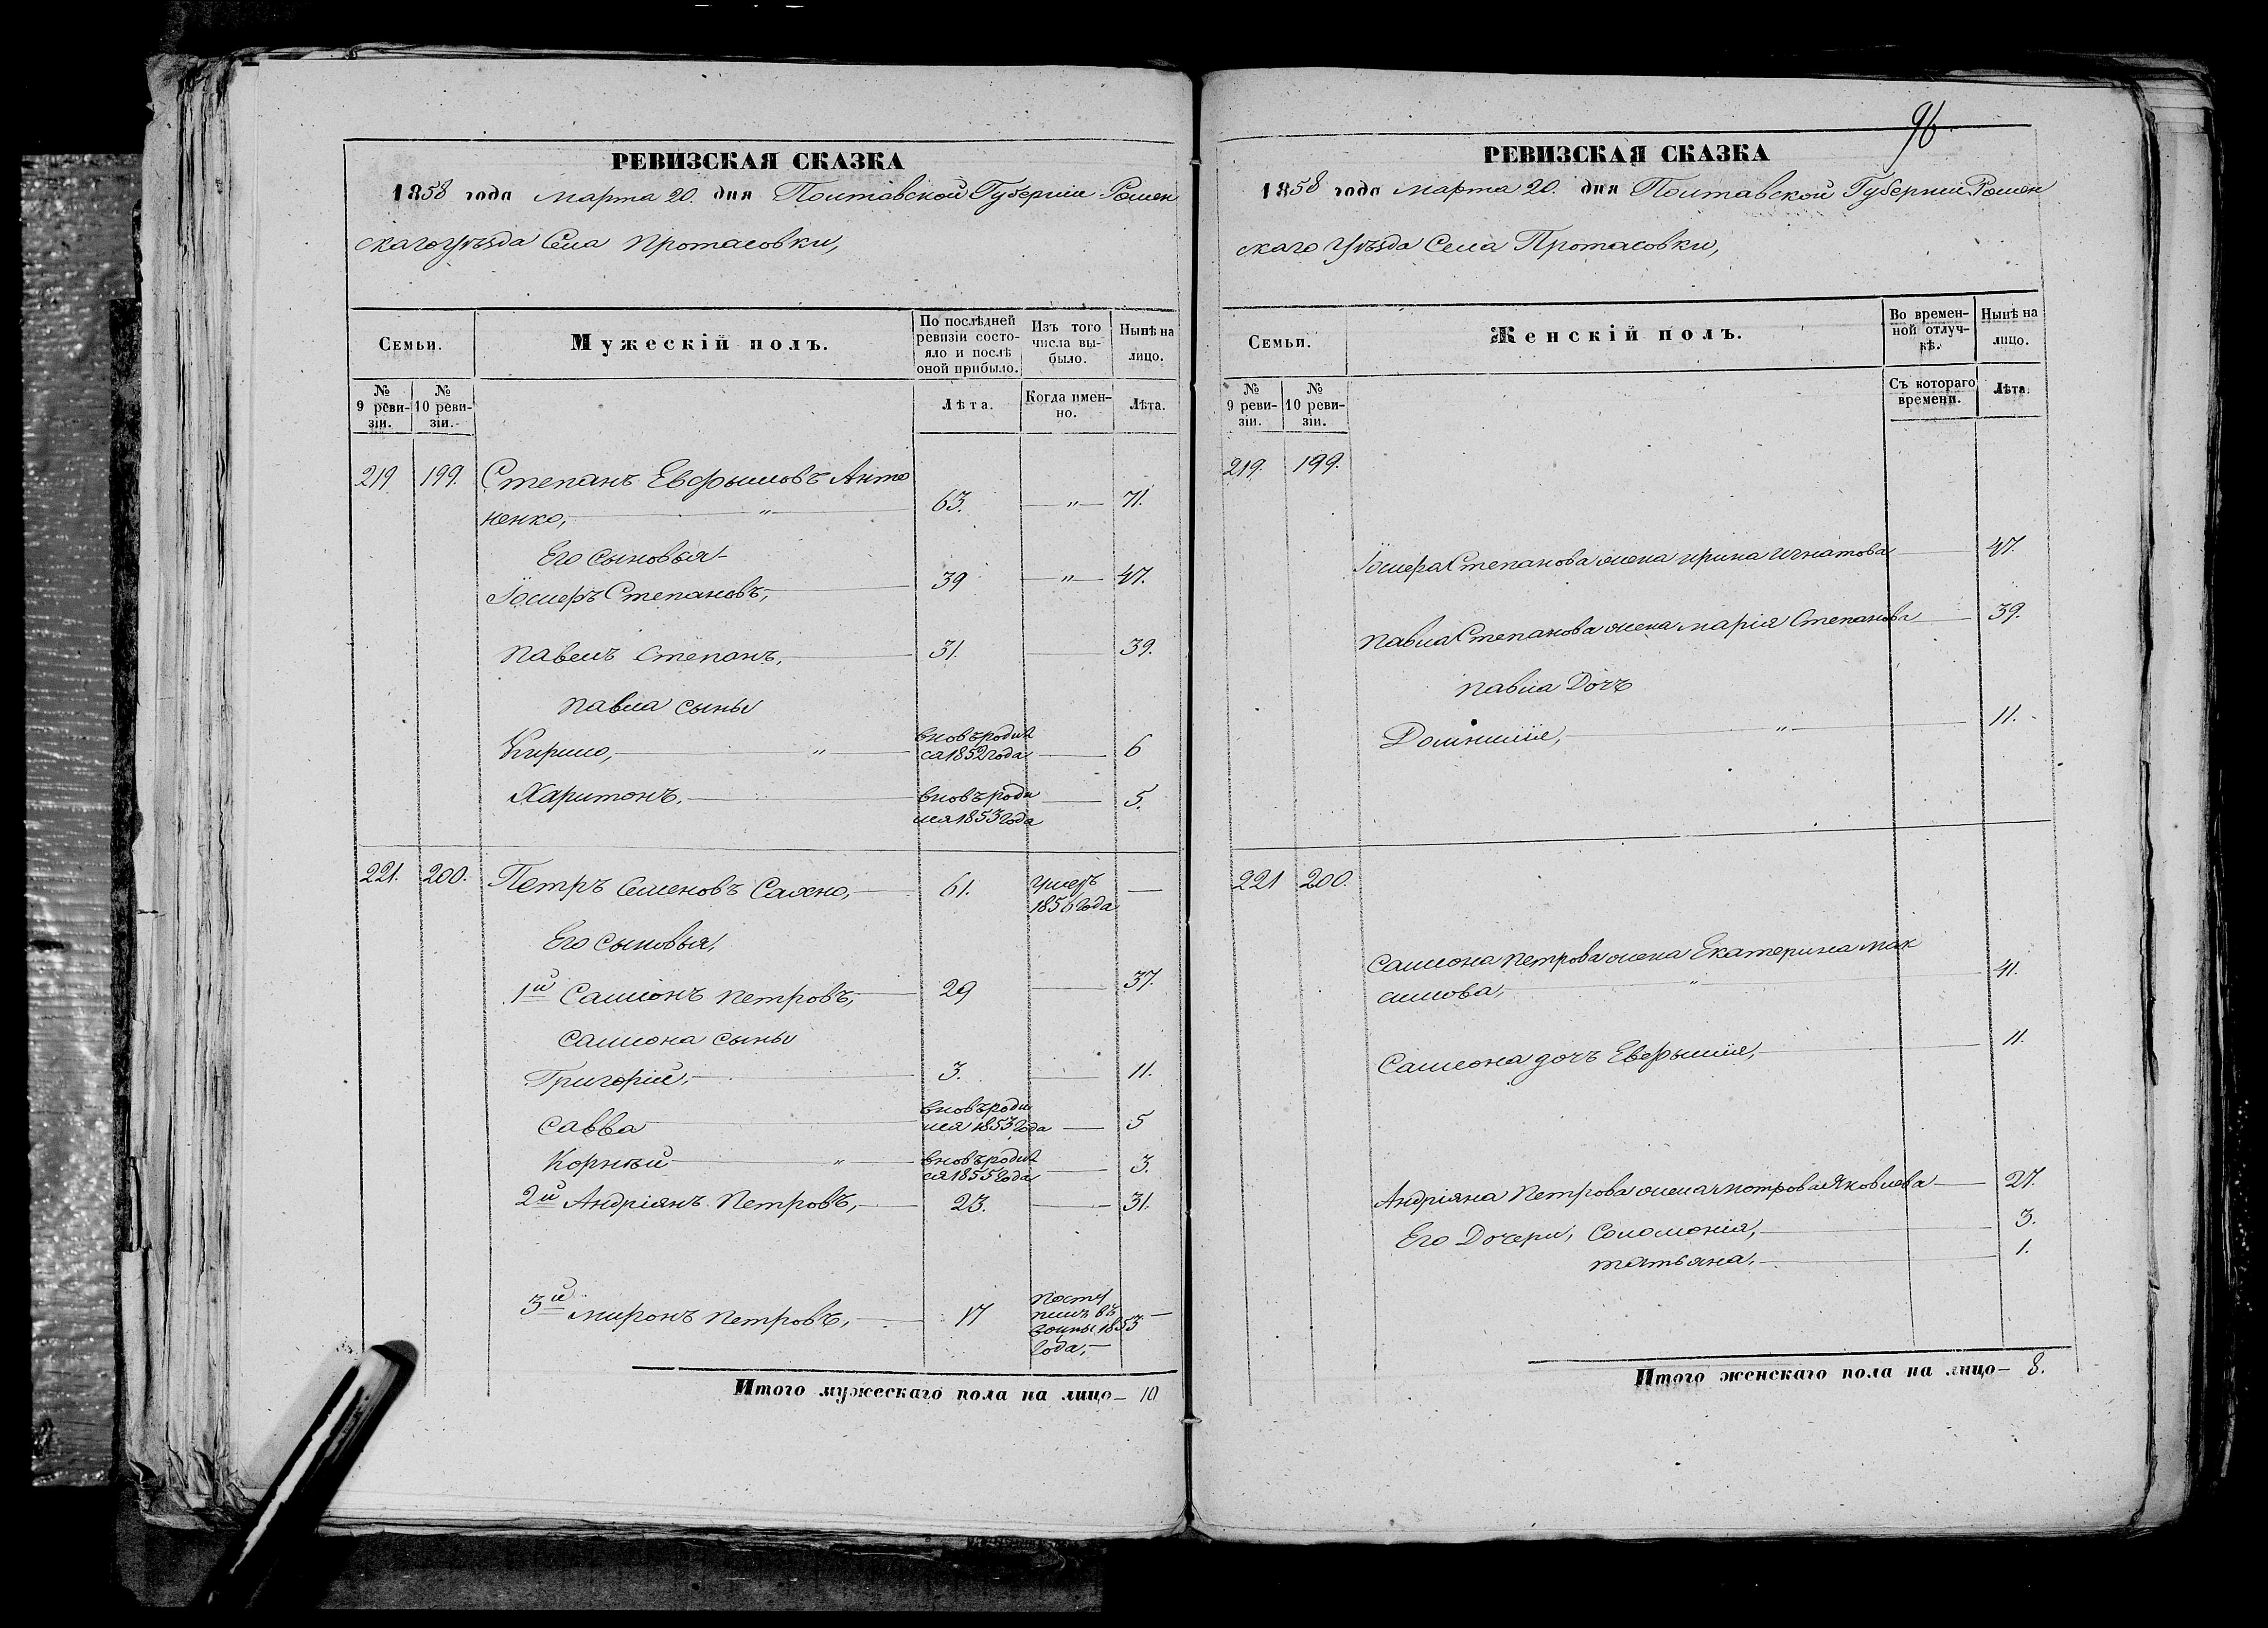 РЕВИЗСКАЯ СКАЗКА
1858 года марта 20. дня Полтавской Губерніи Ромен
скаго уѣзда Села Протасовки,
Семьи.
Мужескій полъ.
По послѣдней ревизіи состояло и послѣ оной прибыло.
Изъ того числа выбыло.
Нынѣ на лицо.
№ 9 ревизіи.
№ 10 ревизіи.
Лѣта.
Когда именно.
Лѣта.
219 199. Степанъ Евфымовъ Анто
ненко, " 63. " 71.
Его сыновья
Іосифъ Степановъ, 39 " 47.
Павелъ Степанъ, 31. 39.
Павла сыны
Кирило, " вновь родил
ся 1852 года 6
Харитонъ, вновь роди
лся 1853 года 5.
221. 200. Петръ Семеновъ 61. умеръ
1856 года
Его сыновья,
1й Самсонъ Петровъ, 29 37.
Самсона сыны
Григорій, 3. 11.
Савва вновь роди
лся 1853 года 5
Корнѣй " вновь родил
ся 1855 года 3.
2й Андріянъ Петровъ, 23. 31.
3й Миронъ Петровъ, 17 посту
пилъ въ
1853
года,
Итого мужескаго пола на лицо 10
96
РЕВИЗСКАЯ СКАЗКА
1858 года марта 20. дня Полтавской Губерніи Ромен
скаго уѣзда Села Протасовки,
Семьи.
Женскій полъ.
Во временной отлучкѣ.
Нынѣ на лицо.
№ 9 ревизіи.
№ 10 ревизіи.
Съ котораго времени.
Лѣта.
219. 199.
Іосифа Степанова жена Ирина Игнатова 47.
Павла Степанова жена Марія Степанова 39.
Павла Дочъ
Домникія, " 11.
221 200.
Самсона Петрова жена Екатерина Мак
симова, " 41.
Самсона дочъ Евфымія, 11.
Андріяна Петрова жена Мотрова Яковлева 27.
Его Дочери, Соломонія, 3.
Татьяна, 1.
Итого женскаго пола на лицо 8.